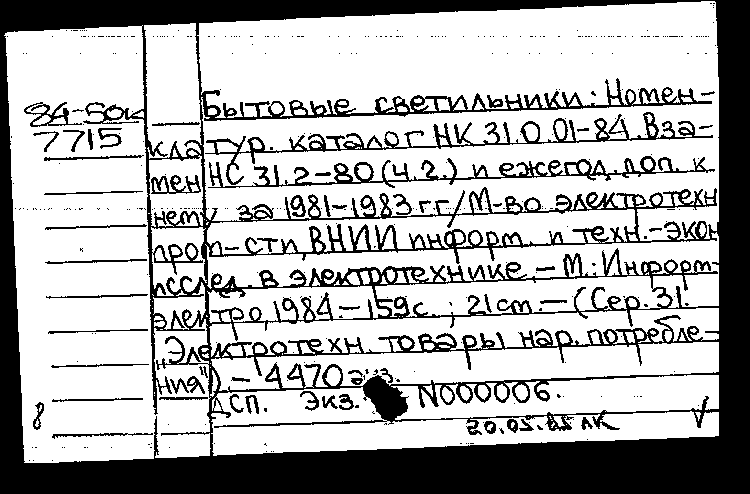 84-50к
7715
Бытовые светильники: Номен-
клатур. каталог НК 31.0.01-84. Вза-
мен НС 31.2-80 (ч.2.) и ежегод. доп. к
нему за 1981-1983 гг/М-во электротехн
пром-сти, ВНИИ информ. и техн.-экон
исслед. в электротехнике. - М.: Информ-
электро, 1984. - 159 с. ; 21 см. - (Сер. 31.
"Электротехн. товары нар. потребле-
ния"). - 4470 экз.
ДСП. Экз. N000006.
8
20.05.85 ЛК